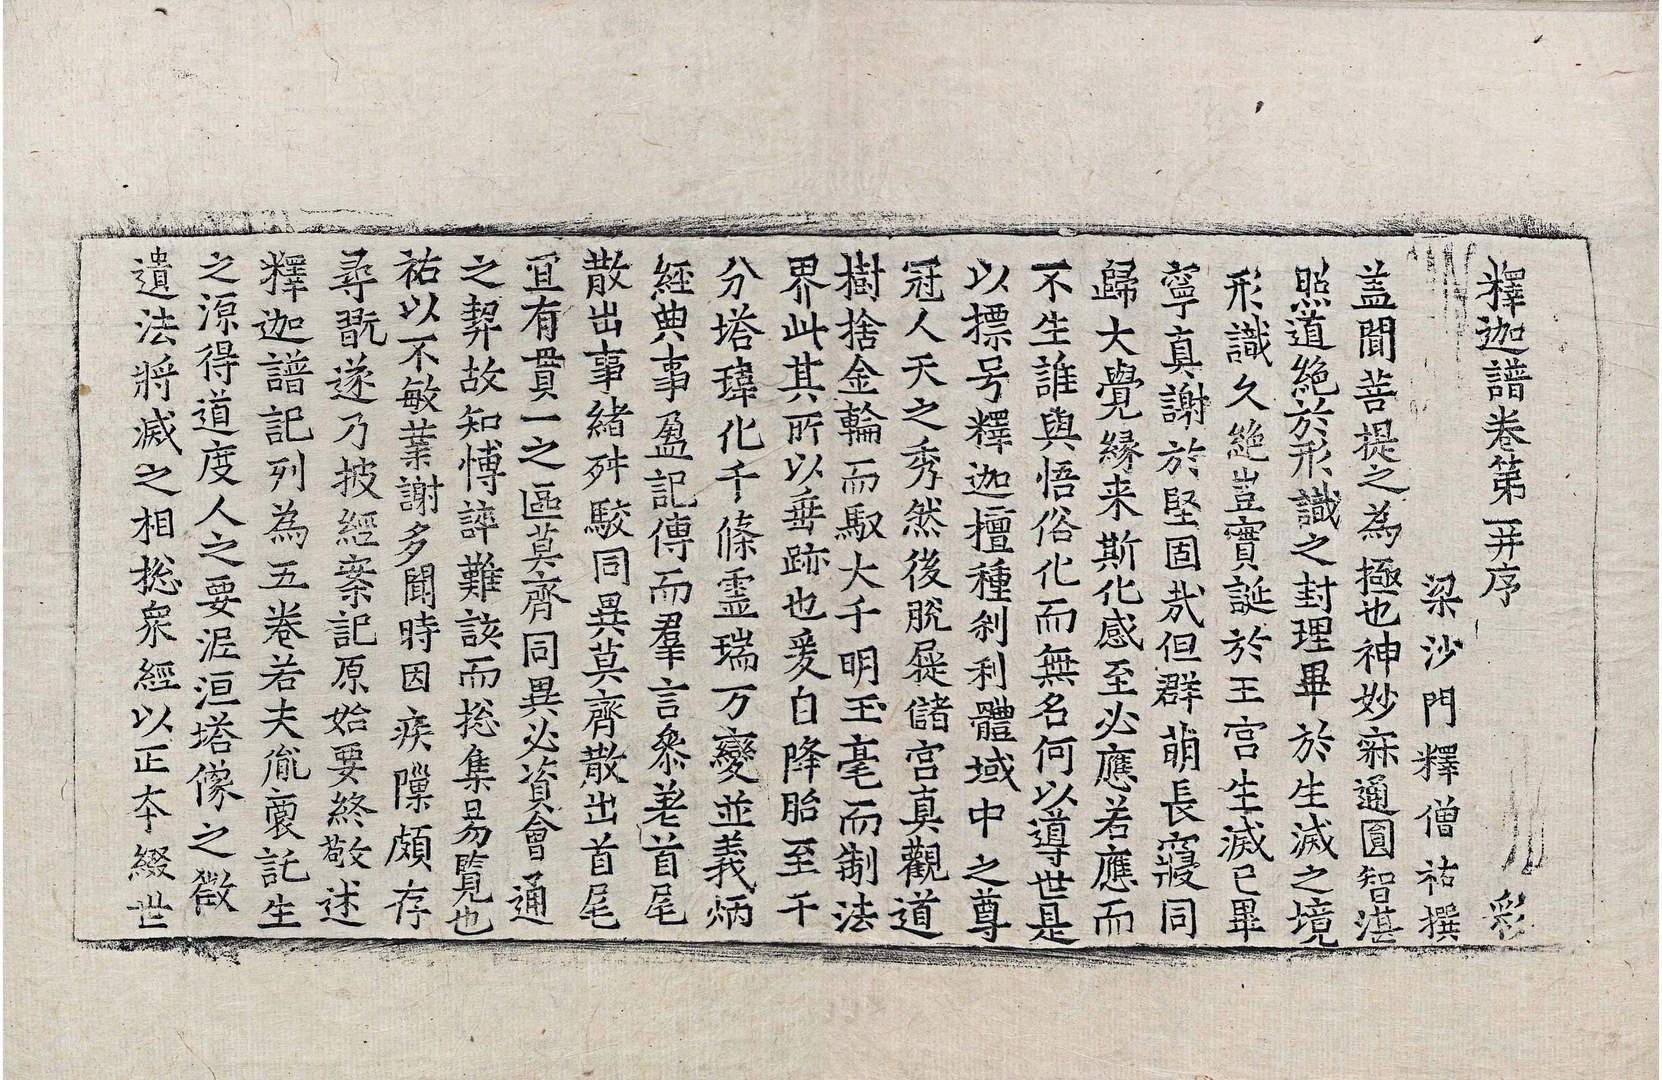 釋迦譜卷第一并序 彩
梁沙門釋僧祐撰
蓋聞菩提之為極也神妙寂通圓智湛
照道絶於形識之封理畢於生滅之境
形識久絶豈實誕於王宮生滅已畢
寧真謝於堅固㢤但群萌長寢同
歸大覺縁来斯化感至必應若應而
不生誰與悟俗化而無名何以導世是
以摽号釋迦擅種刹利體域中之尊
冠人天之秀然後脫屣儲宮真觀道
樹捨金輪而馭大千明玉毫而制法
界此其所以垂跡也爰自降胎至于
分塔瑋化千條霊瑞万變並義炳
經典事盈記傳而羣言叅差首尾
散出事緒舛駮同異莫齊散出首尾
宜有貫一之區莫齊同異必資會通
之契故知博誶難該而捴集易覽也
祐以不敏業謝多聞時因疾隟頗存
尋翫遂乃披經案記原始要終敬述
釋迦譜記列為五卷若夫胤裔託生
之源得道度人之要泥洹塔像之徵
遺法將滅之相捴衆經以正本綴世